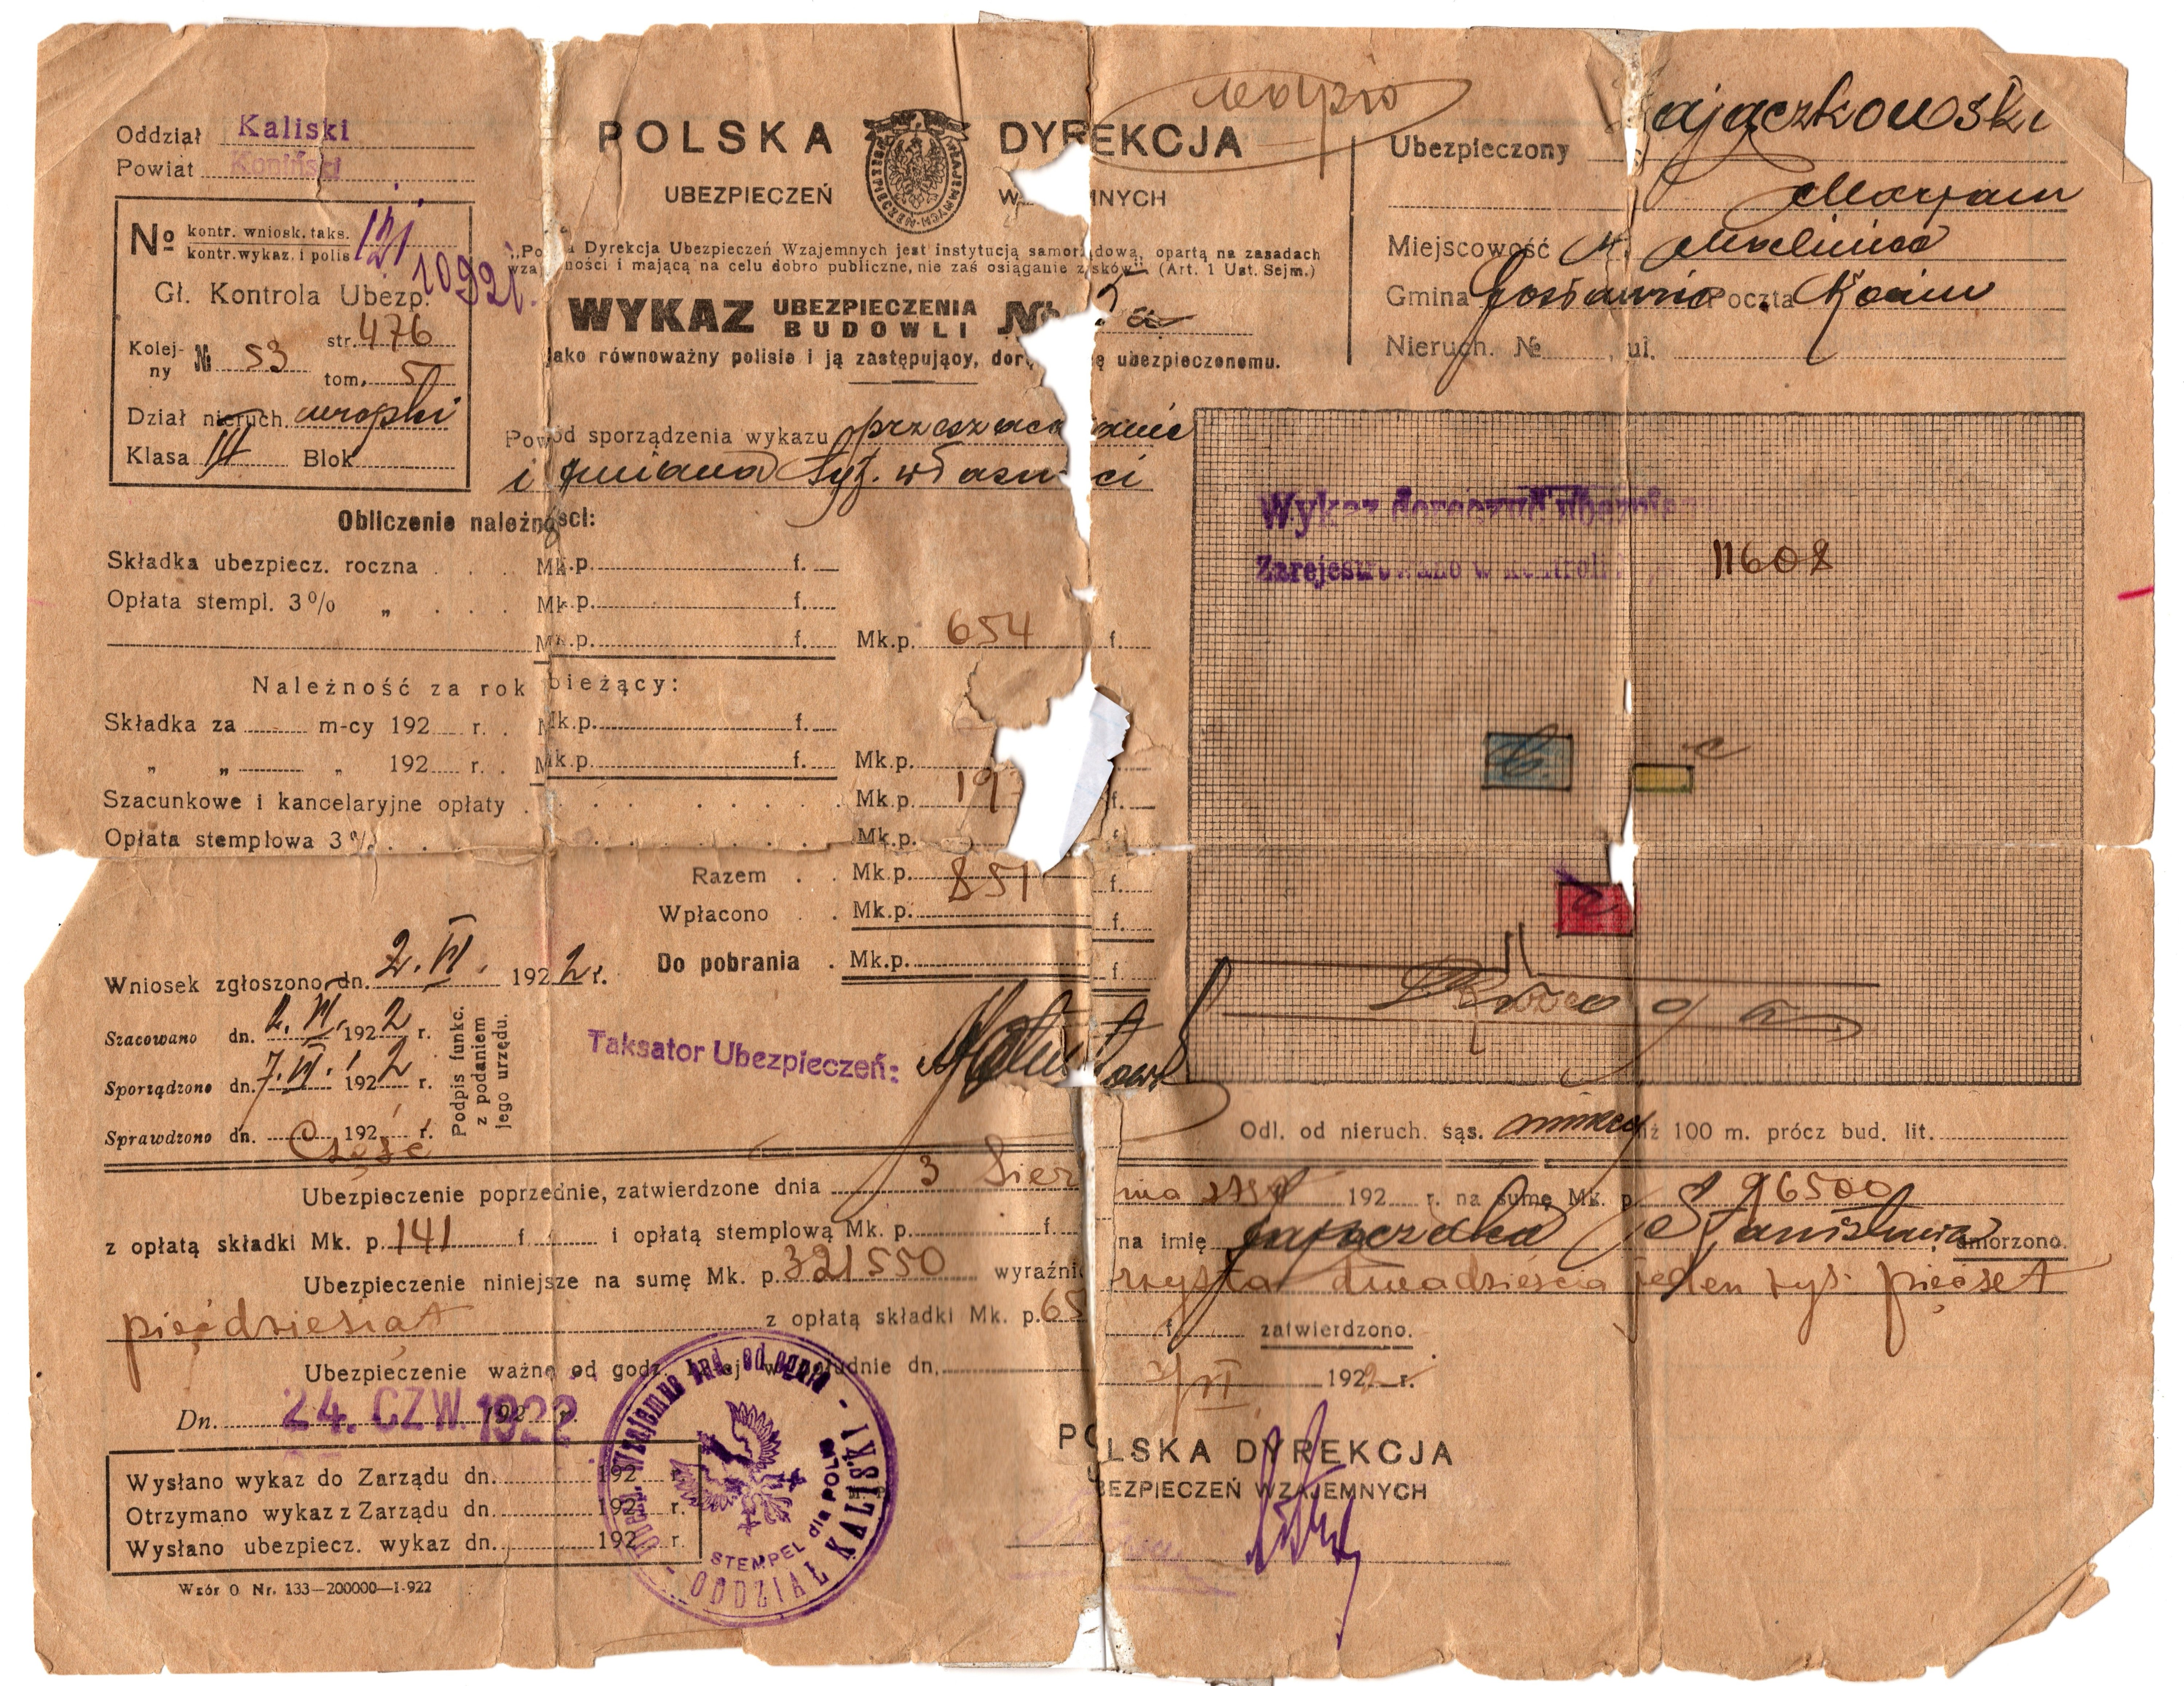 Oddział Kaliski
Powiat Koniński
No kontr. wniosk. taks. 121
kontr. wykaz. i polis 1092
Gł. Kontrola Ubezp.
Kolejny № 53 str. 476
tom. 5
Dział nieruch.
Klasa III Blok
POLSKA DYREKCJA
UBEZPIECZEŃ W MNYCH
„Po a Dyrekcja Ubezpieczeń Wzajemnych jest instytucją samorządową, opartą na zasadach
wzaj ności i mającą na celu dobro publiczne, nie zaś osiąganie zysków" (Art. 1 Ust. Sejm.)
WYKAZ UBEZPIECZENIA BUDOWLI №
jako równoważny polisie i ją zastępujący, dor ę ubezpieczonemu.
Powód sporządzenia wykazu przeszaco anie
i zmiana tyt. własn ci
Ubezpieczony ajączkowski
Marjan
Miejscowość
Gmina Gosławice Poczta Konin
Nieruch. № , ul.
Obliczenie należności:
Składka ubezpiecz. roczna . . . Mk.p. f.
Opłata stempl. 3% „ . . . Mk.p. f.
Mk.p. f. Mk.p. 654 f.
Należność za rok bieżący:
Składka za m-cy 192 r. . Mk.p. f.
„ „ „ 192 r. . Mk.p. f. Mk.p.
Szacunkowe i kancelaryjne opłaty . Mk.p. 19 f.
Opłata stemplowa 3% . . Mk.p. f.
Razem . . Mk.p. 851 f.
Wpłacono . . Mk.p. f.
Do pobrania . Mk.p. f.
Wykaz doręczyć
Zarejestrowano w kontroli 11608
b.
c
a
Droga
Wniosek zgłoszono dn. 2. VI. 1922 r.
Szacowano dn. 2. VI. 1922 r.
Sporządzono dn. 7. VI. 1922 r.
Sprawdzono dn. 192 r.
Podpis funkc. z podaniem jego urzędu.
Taksator Ubezpieczeń:
Odl. od nieruch. sąs. mniej niż 100 m. prócz bud. lit.
Część
Ubezpieczenie poprzednie, zatwierdzone dnia 3 Sier nia 192 r. na sumę Mk. p. 96500
z opłatą składki Mk. p. 141 f. i opłatą stemplową Mk. p. f. na imię Stanisława umorzono.
Ubezpieczenie niniejsze na sumę Mk. p. 321550 wyraźni rzysta dwadzieścia jeden tys. pięćset
pięćdziesiąt z opłatą składki Mk. p. 65 f. zatwierdzono.
Ubezpieczenie ważne od godz. w południe dn. VI 1922 r.
Dn. 24. CZW. 1922 192 r.
Wysłano wykaz do Zarządu dn. 192 r.
Otrzymano wykaz z Zarządu dn. 192 r.
Wysłano ubezpiecz. wykaz dn. 192 r.
Wzór O Nr. 133—200000—I-922
Ubezp. Wzajemne bud. od ognia - ODDZIAŁ KALISKI -
STEMPEL dla POLIS
POLSKA DYREKCJA
BEZPIECZEŃ WZAJEMNYCH